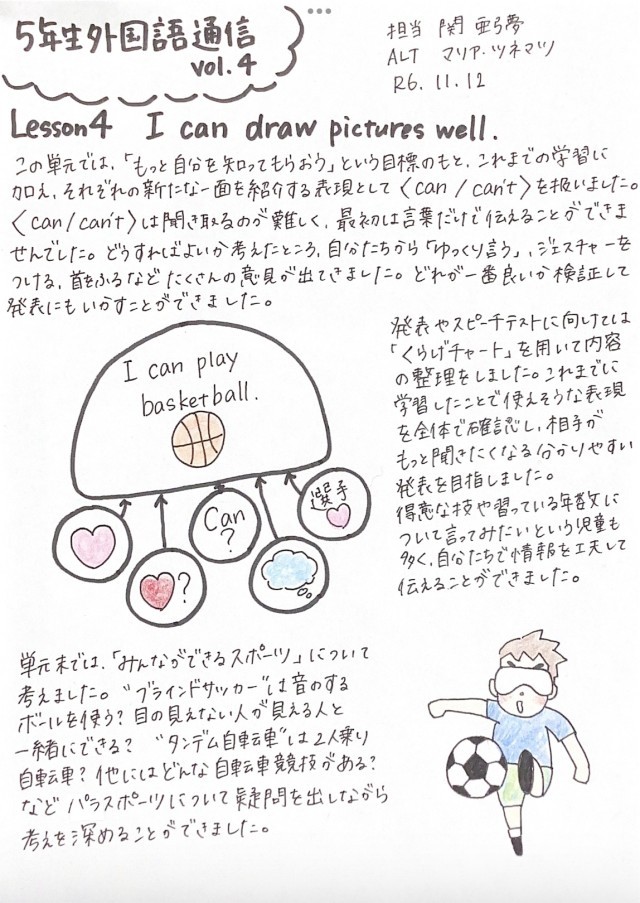 5年生外国語通信
vol.4
担当 関 亜弓夢
ALT マリア・ツネマツ
R6.11.12
Lesson4 I can draw pictures well.
この単元では、「もっと自分を知ってもらおう」という目標のもと、これまでの学習に
加え、それぞれの新たな一面を紹介する表現として〈can/can't〉を扱いました。
〈can/can't〉は聞き取るのが難しく、最初は言葉だけで伝えることができま
せんでした。どうすればよいか考えたところ、自分たちから「ゆっくり言う」、ジェスチャーを
つける、首をふるなどたくさんの意見が出てきました。どれが一番良いか検証して
発表にもいかすことができました。
I can play
basketball.
選手
Can
?
?
発表やスピーチテストに向けては
「くらげチャート」を用いて内容
の整理をしました。これまでに
学習したことで使えそうな表現
を全体で確認し、相手が
もっと聞きたくなる分かりやすい
発表を目指しました。
得意な技や習っている年数に
ついて言ってみたいという児童も
多く、自分たちで情報を工夫して
伝えることができました。
単元末では、「みんなができるスポーツ」について
考えました。"ブラインドサッカー"は音のする
ボールを使う?目の見えない人が見える人と
一緒にできる? "タンデム自転車"は2人乗り
自転車?他にはどんな自転車競技がある?
などパラスポーツについて疑問を出しながら
考えを深めることができました。